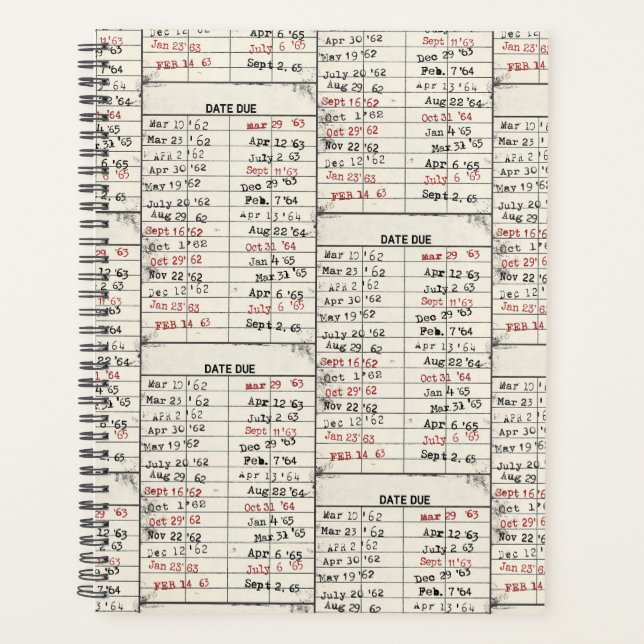 Dec 12 '62 Apr 6 '65
Jan 23 '63 July 6 '65
FEB 14 63 Sept 2, 65
DATE DUE
Mar 10 '62 Mar 29 '63
Mar 23 '62 Apr 12 '63
APR 2 '62 July 2 63
Apr 30 '62 Sept 11 '63
May 19 '62 Dec 29 '63
July 20 '62 Feb. 7 '64
Aug 29 62 Apr 13 '64
Sept 16 '62 Aug 22 '64
Oct 1 '62 Oct 31 '64
Oct 29 '62 Jan 4 '65
Nov 22 '62 Mar 31 '65
Dec 12 '62 Apr 6 '65
Jan 23 '63 July 6 '65
FEB 14 63 Sept 2, 65
DATE DUE
Mar 10 '62 Mar 29 '63
Mar 23 '62 Apr 12 '63
APR 2 '62 July 2 63
Apr 30 '62 Sept 11 '63
May 19 '62 Dec 29 '63
July 20 '62 Feb. 7 '64
Aug 29 62 Apr 13 '64
Sept 16 '62 Aug 22 '64
Oct 1 '62 Oct 31 '64
Oct 29 '62 Jan 4 '65
Nov 22 '62 Mar 31 '65
Dec 12 '62 Apr 6 '65
Jan 23 '63 July 6 '65
FEB 14 63 Sept 2, 65
Apr 30 '62 Sept 11 '63
May 19 '62 Dec 29 '63
July 20 '62 Feb. 7 '64
Aug 29 62 Apr 13 '64
Sept 16 '62 Aug 22 '64
Oct 1 '62 Oct 31 '64
Oct 29 '62 Jan 4 '65
Nov 22 '62 Mar 31 '65
Dec 12 '62 Apr 6 '65
Jan 23 '63 July 6 '65
FEB 14 63 Sept 2, 65
DATE DUE
Mar 10 '62 Mar 29 '63
Mar 23 '62 Apr 12 '63
APR 2 '62 July 2 63
Apr 30 '62 Sept 11 '63
May 19 '62 Dec 29 '63
July 20 '62 Feb. 7 '64
Aug 29 62 Apr 13 '64
Sept 16 '62 Aug 22 '64
Oct 1 '62 Oct 31 '64
Oct 29 '62 Jan 4 '65
Nov 22 '62 Mar 31 '65
Dec 12 '62 Apr 6 '65
Jan 23 '63 July 6 '65
FEB 14 63 Sept 2, 65
DATE DUE
Mar 10 '62 Mar 29 '63
Mar 23 '62 Apr 12 '63
APR 2 '62 July 2 63
Apr 30 '62 Sept 11 '63
May 19 '62 Dec 29 '63
July 20 '62 Feb. 7 '64
Aug 29 62 Apr 13 '64